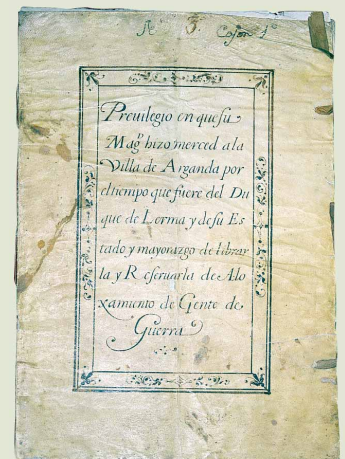 Nº 3. Cajon 1º
Preuilegio en que sú
Magᵈ hizo merced a la
Villa de Arganda por
el tiempo que fuere del Du
que de Lerma y de sú Es
tado y mayorazgo de librar
la y Reseruarla de Alo
xamiento de Gente de
Guerra